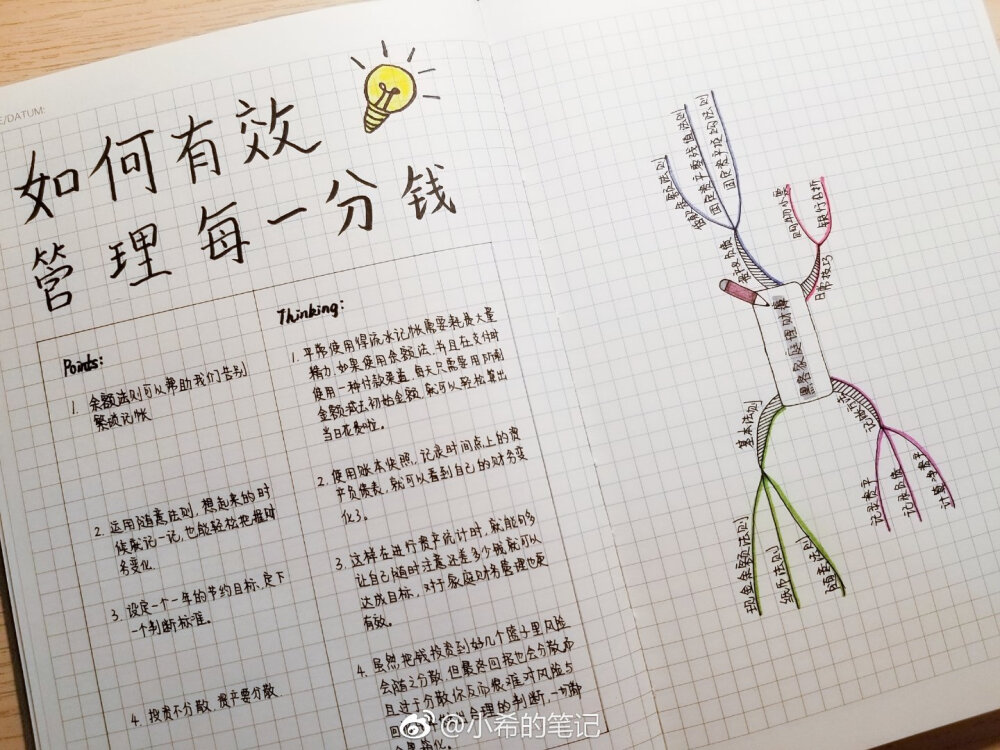 E/DATUM:
如何有效
管理每一分钱
Points:
1. 余额法则可以帮助我们告别
繁琐记帐
2. 运用随意法则，想起来的时
候就记一记，也能轻松把握财
务变化.
3. 设定一个一年的节约目标，定下
一个判断标准。
4. 投资不分散，资产要分散.
Thinking:
1. 平常使用得流水记帐需要耗费大量
精力，如果使用余额法，并且在支付时
使用一种付款渠道，每天只需要用所剩
金额减去初始金额，就可以轻松算出
当日花费啦。
2. 使用账本快照，记录时间点上的资
产负债表，就可以看到自己的财务变
化了。
3. 这样在进行资产统计时，就能够多
让自己随时注意还差多少钱就可以
达成目标，对于家庭财务管理也更
有效。
4. 虽然把钱投资到好几个篮子里风险
会随之分散，但最终回报也会分散，而
且过于分散，你反而很难对风险与
回 合理的判断，一切都
会更简化。
余额法则
固定资产平均法则
购物小票
银行对帐
日常技巧
黑客家庭理财
基本法则
现金余额法则
纸币法则
随意法则
记录资产
记录负债
计算净资产
@小希的笔记